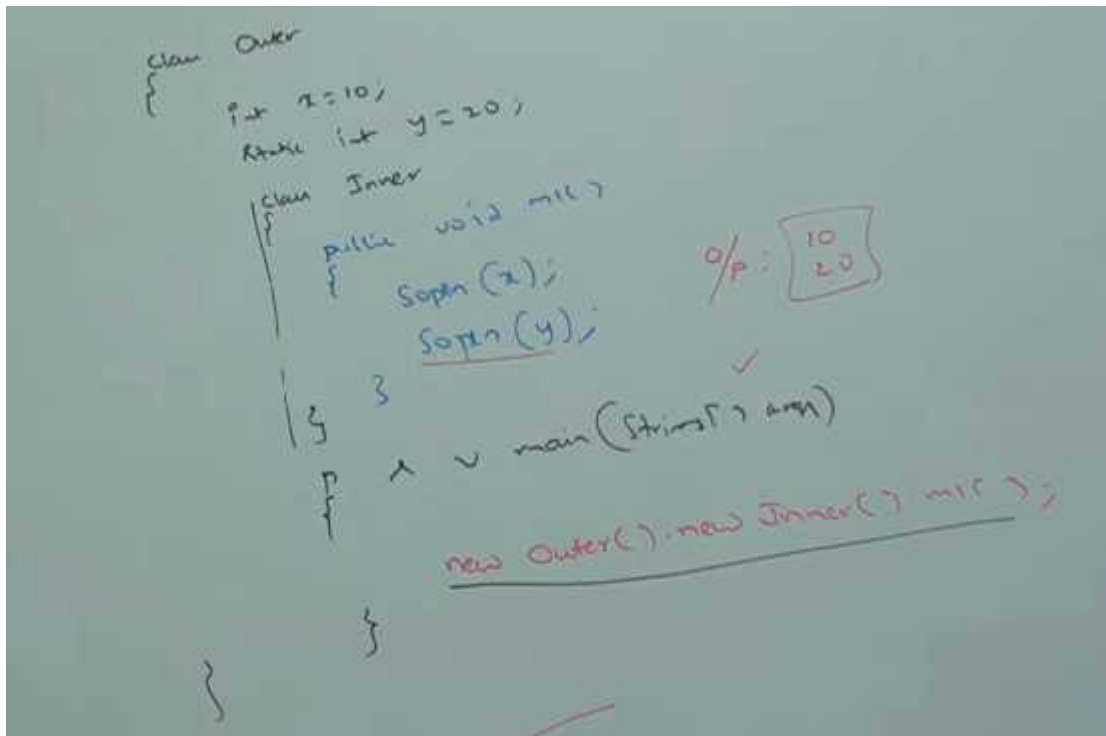 class Outer
{
int x=10;
static int y=20;
class Inner
{
public void m1()
{
Sopln(x);
Sopln(y);
}
}
O/P: 10
20
P s v main(String[] args)
{
new Outer().new Inner() m1();
}
}